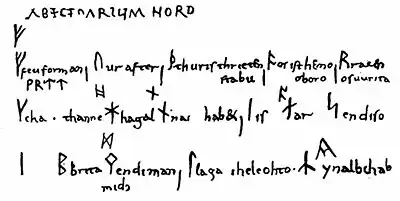 ABECEDARIUM NORD
ᚠ
ᚠ feuforman, ᚢ ur after, ᚦ thuris thriten ᚭ os ist himo ᚱ rat en
stabu oboro os uurita
ᚻ ᚾ ᚬ
ᚴ cha. thanne ᚼ hagal ᚾ nau hab& ᛁ is ᛅ ar ᛋ endi so
ᛞ
ᛁ ᛒ brita ᛘ endi man, ᛚ laga the leohto. ᛦ yr al bihab
midi